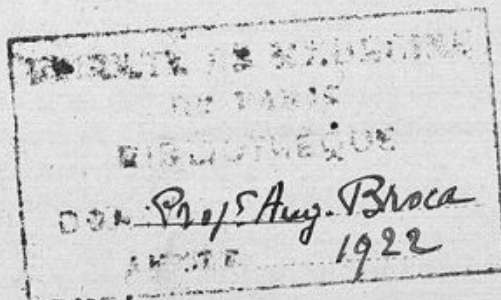 FACULTÉ DE MÉDECINE
DE PARIS
BIBLIOTHÈQUE
DON Profr Aug. Broca
ANNÉE 1922